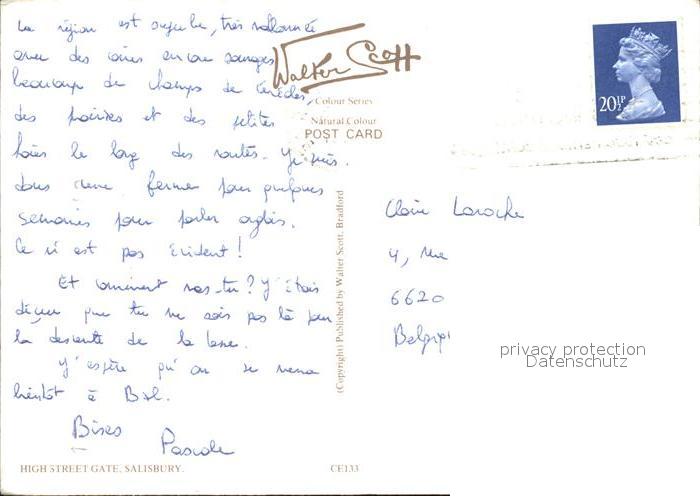 La région est superbe, très vallonnée
avec des coins encore sauvages
beaucoup de champs de céréales,
des prairies et des petites
haies le long des routes. Je suis
dans une ferme pour quelques
semaines pour parler anglais.
Ce n'est pas évident!
Et comment vas-tu? J'étais
déçue que tu ne sois pas là pour
la descente de la
J'espère qu'on se verra
bientôt à Bxl.
Bises
Pascale
HIGH STREET GATE, SALISBURY.
CE133
Walter Scott
Colour Series
Natural Colour
POST CARD
(Copyright) Published by Walter Scott, Bradford
20½P
Claire Laroche
4, rue
6620
Belgique
privacy protection
Datenschutz